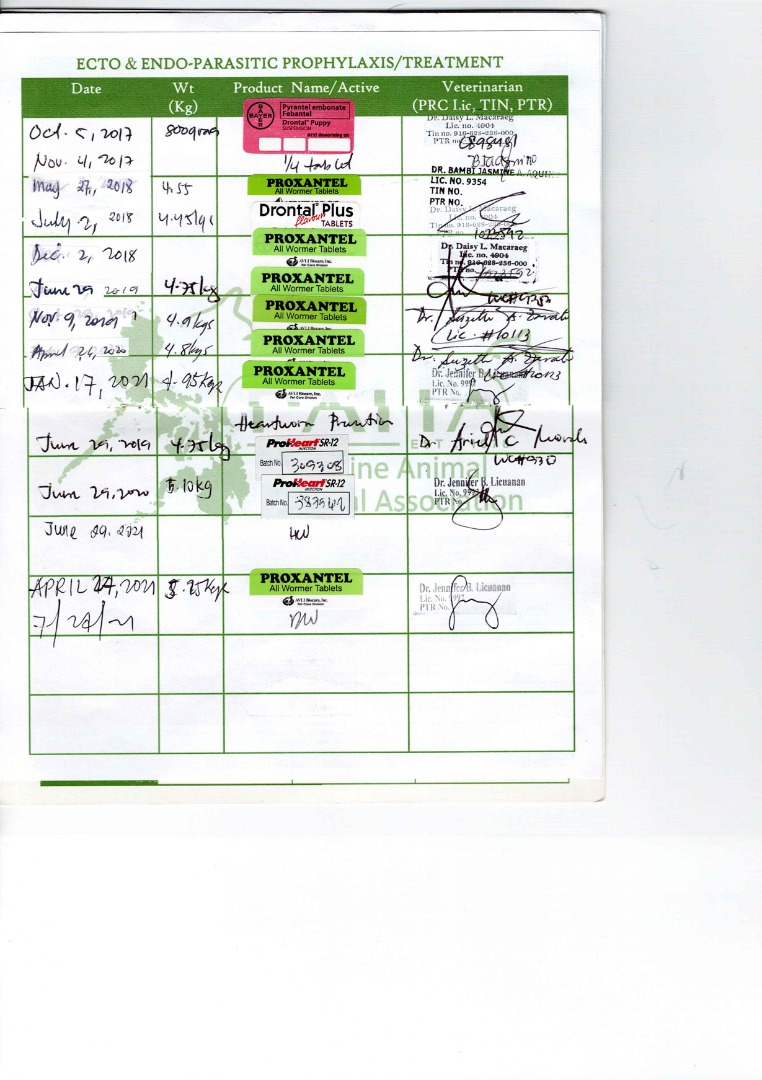 ECTO & ENDO-PARASITIC PROPHYLAXIS/TREATMENT
Date Wt (Kg) Product Name/Active Veterinarian (PRC Lic, TIN, PTR)
Oct. 5, 2017 800grams
BAYER
Pyrantel embonate
Febantel
Drontal® Puppy
SUSPENSION
next deworming on
Dr. Daisy L. Macaraeg
Lic. no. 4904
Tin no. 916-628-256-000
PTR no.
Nov. 4, 2017 1/4 tablet
May 27, 2018 4.55 PROXANTEL
All Wormer Tablets
DR. BAMBI JASMINE
LIC. NO. 9354
TIN NO.
PTR NO.
July 2, 2018 4.45kg Drontal® Plus
flavour TABLETS
Dr. Daisy L. Macaraeg
1022592
Dec. 2, 2018 PROXANTEL
All Wormer Tablets
AVLI Biocare, Inc.
Pet Care Division
Dr. Daisy L. Macaraeg
Lic. no. 4904
Tin no. 916-628-256-000
PTR no. 1022592
June 29 2019 4.75kg PROXANTEL
All Wormer Tablets
Nov. 9, 2019 4.9kgs PROXANTEL
All Wormer Tablets
Dr. Suzette A.
Lic. #10113
April 26, 2020 4.8kgs PROXANTEL
All Wormer Tablets
Dr. Suzette A.
JAN. 17, 2021 4.95kgs PROXANTEL
All Wormer Tablets
AVLI Biocare, Inc.
Pet Care Division
Dr. Jennifer B. Licuanan
Lic. No.
PTR No.
Heartworm
June 29, 2019 4.75kg ProHeart® SR-12
INJECTION
Batch No. 309308
Dr. Ariel C
June 29, 2020 5.10kg ProHeart® SR-12
INJECTION
Batch No.
Dr. Jennifer B. Licuanan
Lic. No.
PTR No.
ine Animal
l Association
June 29. 2021 HW
APRIL 27, 2021 5.25kgs PROXANTEL
All Wormer Tablets
AVLI Biocare, Inc.
Pet Care Division
Dr. Jennifer B. Licuanan
Lic. No.
PTR No.
7/27/21 DW